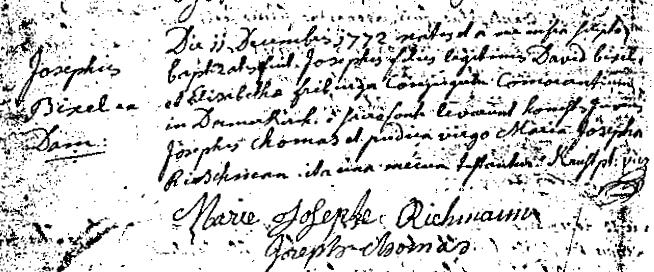 Josephus
Bixel ex
Dam:
Die 11 Decembris 1772 natus et a me infra scripto
baptizatus fuit Josephus filius legitimus David bixel
et Elisabetha conjugum Commorantium
in Damerkirk è sacro fonte levarunt honestus juvenis
Josephus Thomas et pudica virgo Maria Josepha
Rieschman ita una mecum testantur
Marie Josephe Richmann
Joseph thomas